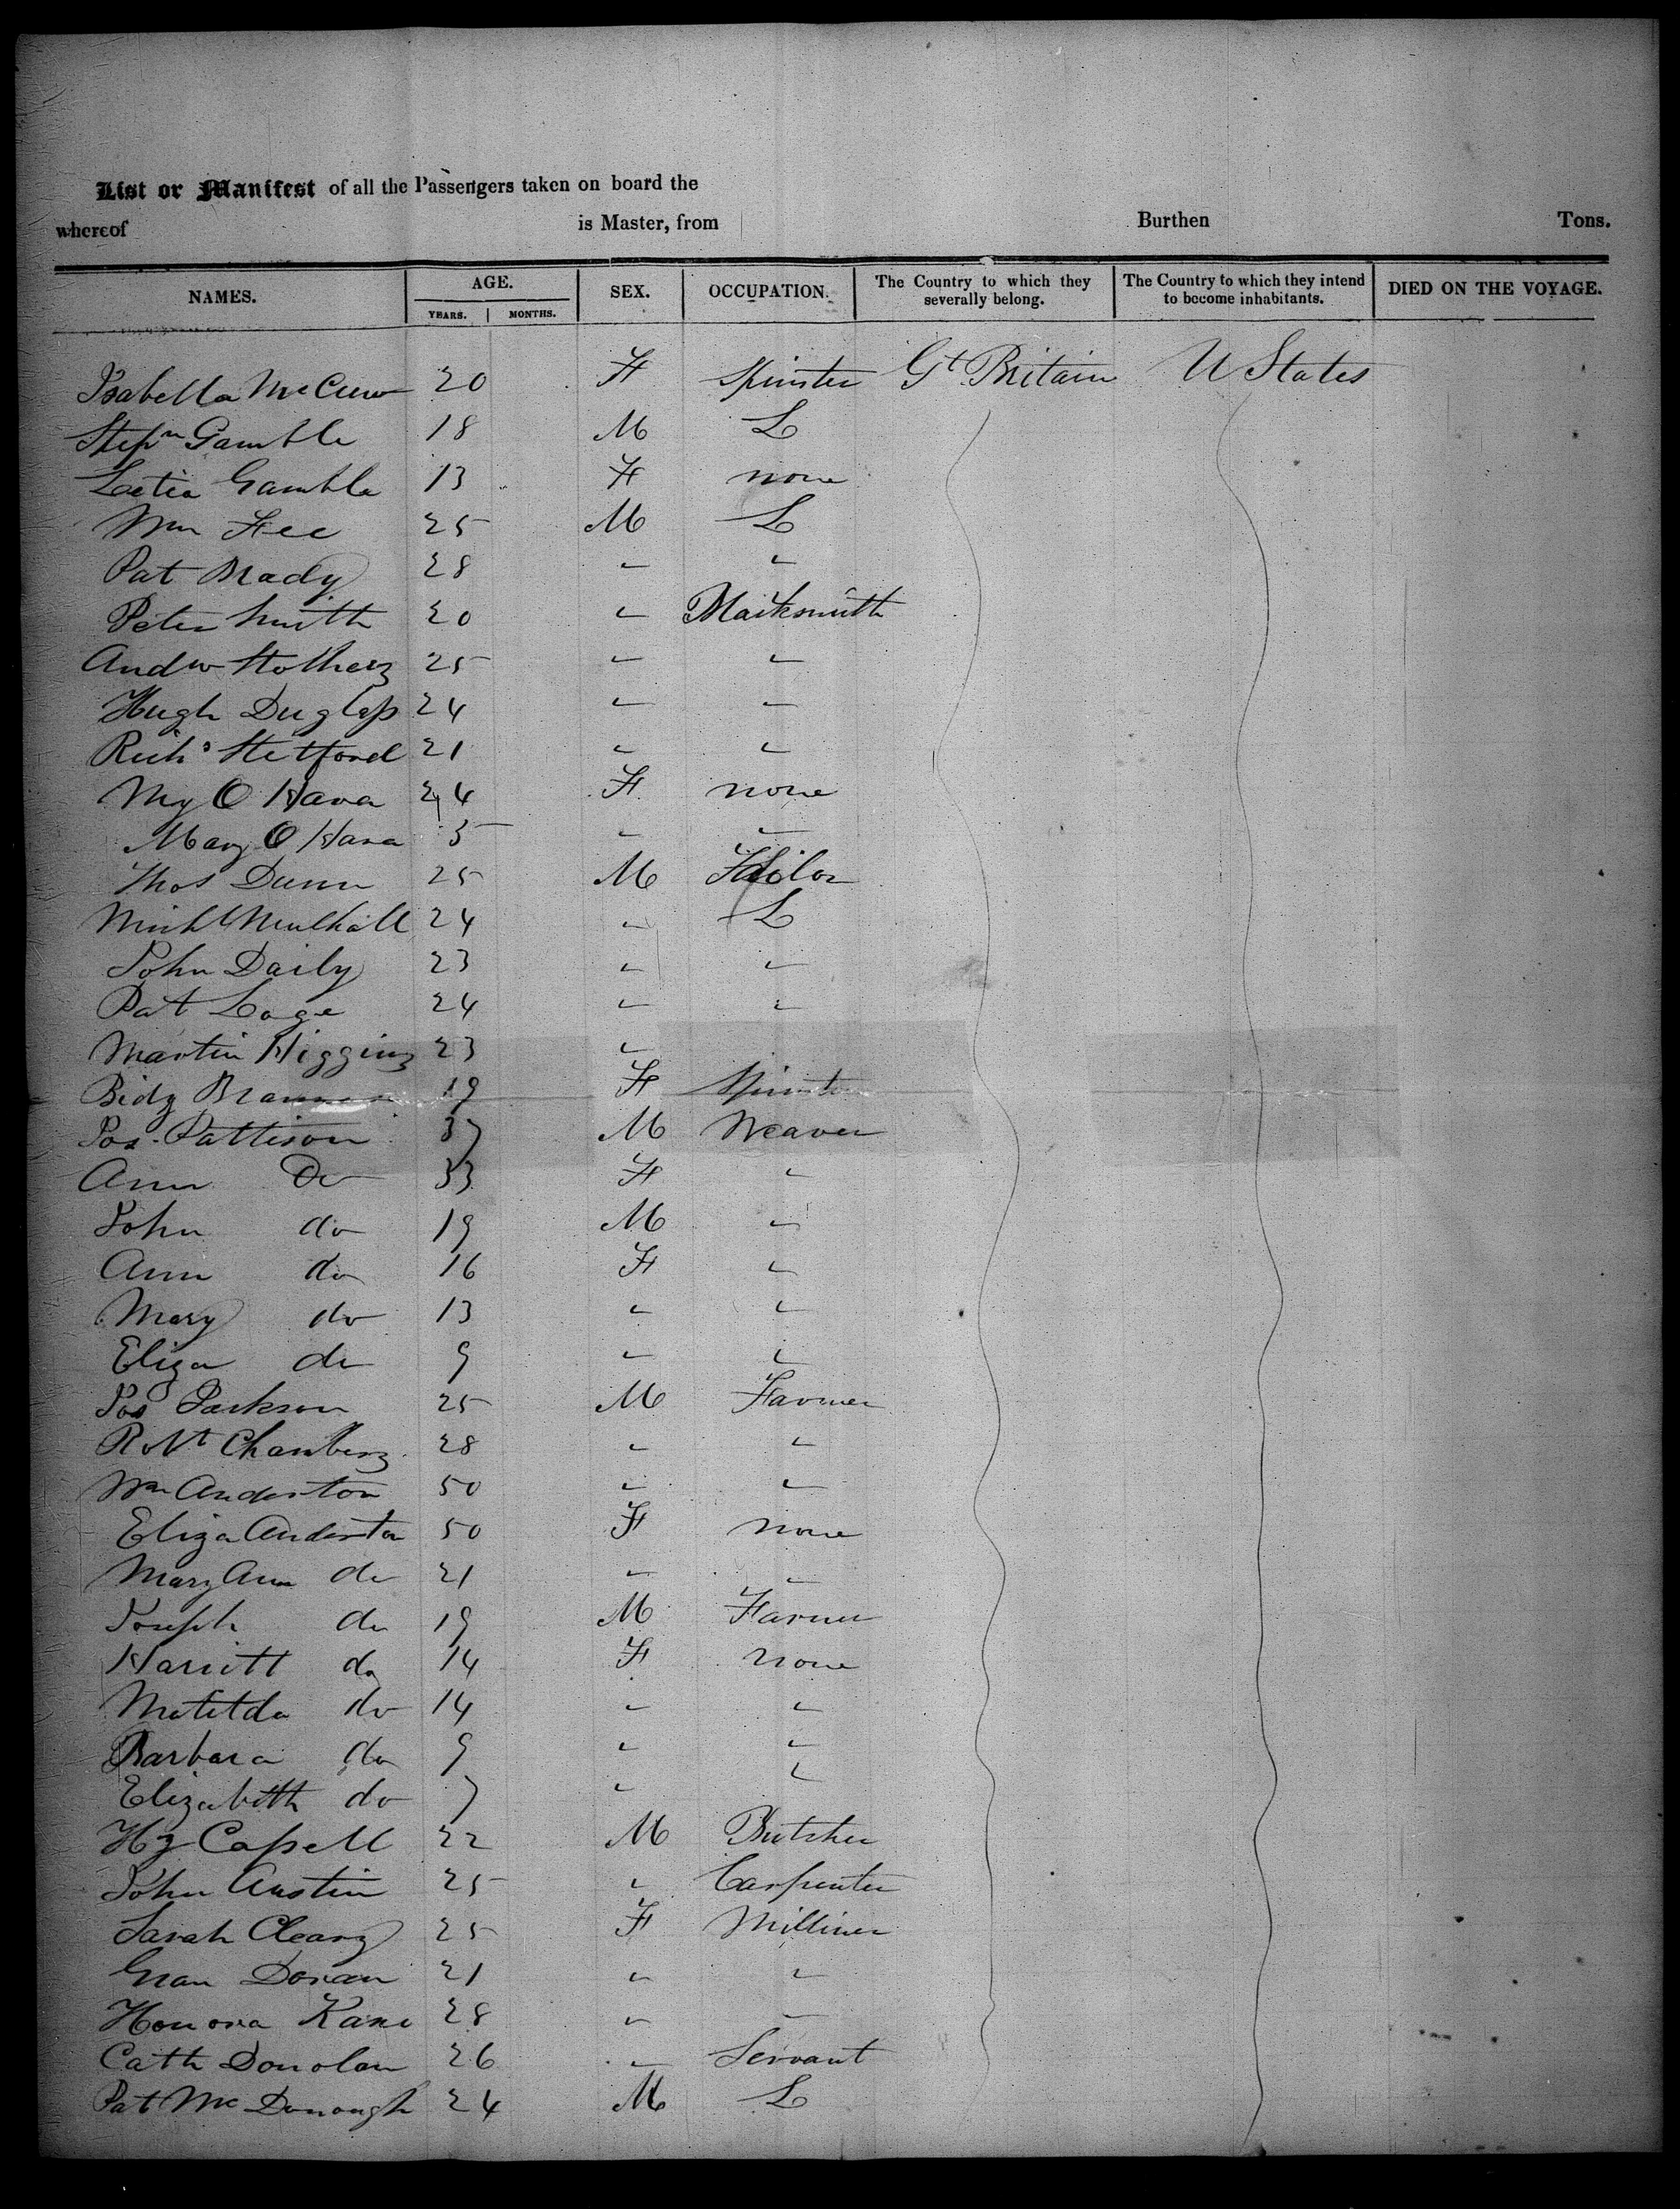 List or Manifest of all the Passengers taken on board the
whereof is Master, from Burthen Tons.
NAMES. AGE. SEX. OCCUPATION. The Country to which they severally belong. The Country to which they intend to become inhabitants. DIED ON THE VOYAGE.
YEARS. MONTHS.
Isabella 20 F Spinster Gt Britain U States
Stepn Gamble 18 M L
Letia Gamble 13 F none
Wm Fee 25 M L
Pat Brady 28 " "
Peter Smith 20 " Blacksmith
Andw Stothers 25 " "
Hugh Duglass 24 " "
Richd Stetford 21 " "
My O Hara 24 F none
Mary O Hara 5 " "
Thos Dunn 25 M Tailor
Michl Mulhall 24 " L
John Daily 23 " "
Pat Loge 24 " "
Martin Higgins 23 "
Bidy 19 F Spinster
Jos. Pattison 37 M Weaver
Ann Do 33 F "
John do 19 M "
Ann do 16 F "
Mary do 13 " "
Eliza do 9 " "
Jos Jackson 25 M Farmer
Robt Chambers 28 " "
Wm Anderton 50 " "
Eliza Anderton 50 F none
Mary Ann do 21 " "
Joseph do 19 M Farmer
Harriett do 14 F none
Matilda do 14 " "
Barbara do 9 " "
Elizabeth do 7 " "
Hy Cassell 22 M Butcher
John Austin 25 " Carpenter
Sarah Cleary 25 F Milliner
Doran 21 " "
Honora Kane 28 " "
Cath Donolan 26 " Servant
Pat McDonough 24 M L